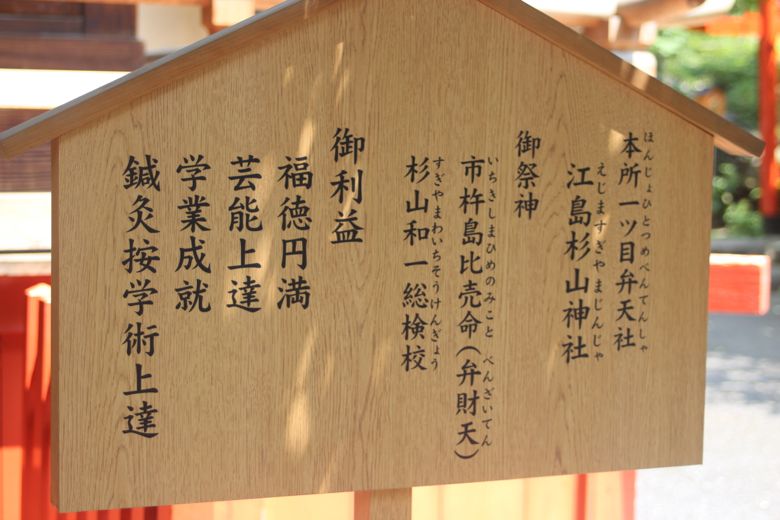 本所一ツ目弁天社
ほんじょひとつめべんてんしゃ
江島杉山神社
えじますぎやまじんじゃ
御祭神
市杵島比売命(弁財天)
いちきしまひめのみこと べんざいてん
杉山和一総検校
すぎやまわいちそうけんぎょう
御利益
福徳円満
芸能上達
学業成就
鍼灸按学術上達